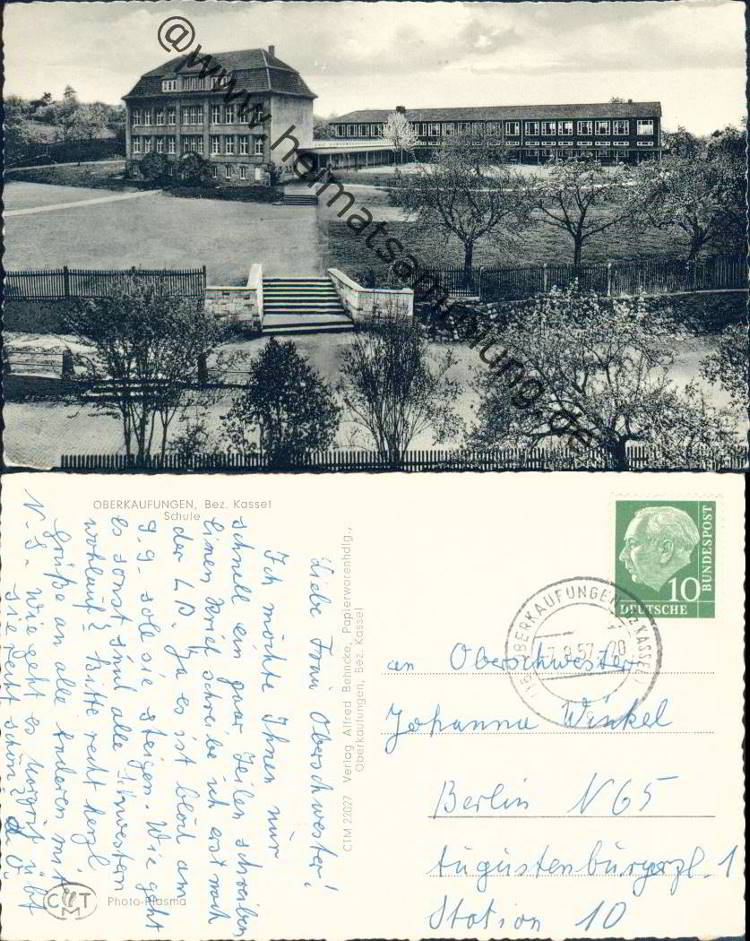 @www.heimatsammlung.de
OBERKAUFUNGEN, Bez. Kassel
Schule
Liebe Frau Oberschwester!
Ich möchte Ihnen nur
schnell ein paar Zeilen schreiben
einen Brief schreibe ich erst nach
der L.P. Ja es ist blöd am
9.9. soll sie steigen. Wie geht
es sonst sind alle Schwestern
wohlauf? Bitte recht herzl.
Grüße an alle Anderen mit
N.S. Wie geht es Margrit übt
sie recht schön?
CTM 22027 Verlag Alfred Behncke, Papierwarenhdlg.,
Oberkaufungen, Bez. Kassel
CTM
Photo-Plasma
10
DEUTSCHE
BUNDESPOST
OBERKAUFUNGEN Bz KASSEL
.57.-20
an Oberschwester
Johanna Winkel
Berlin N65
Augustenburgerpl. 1
Station 10